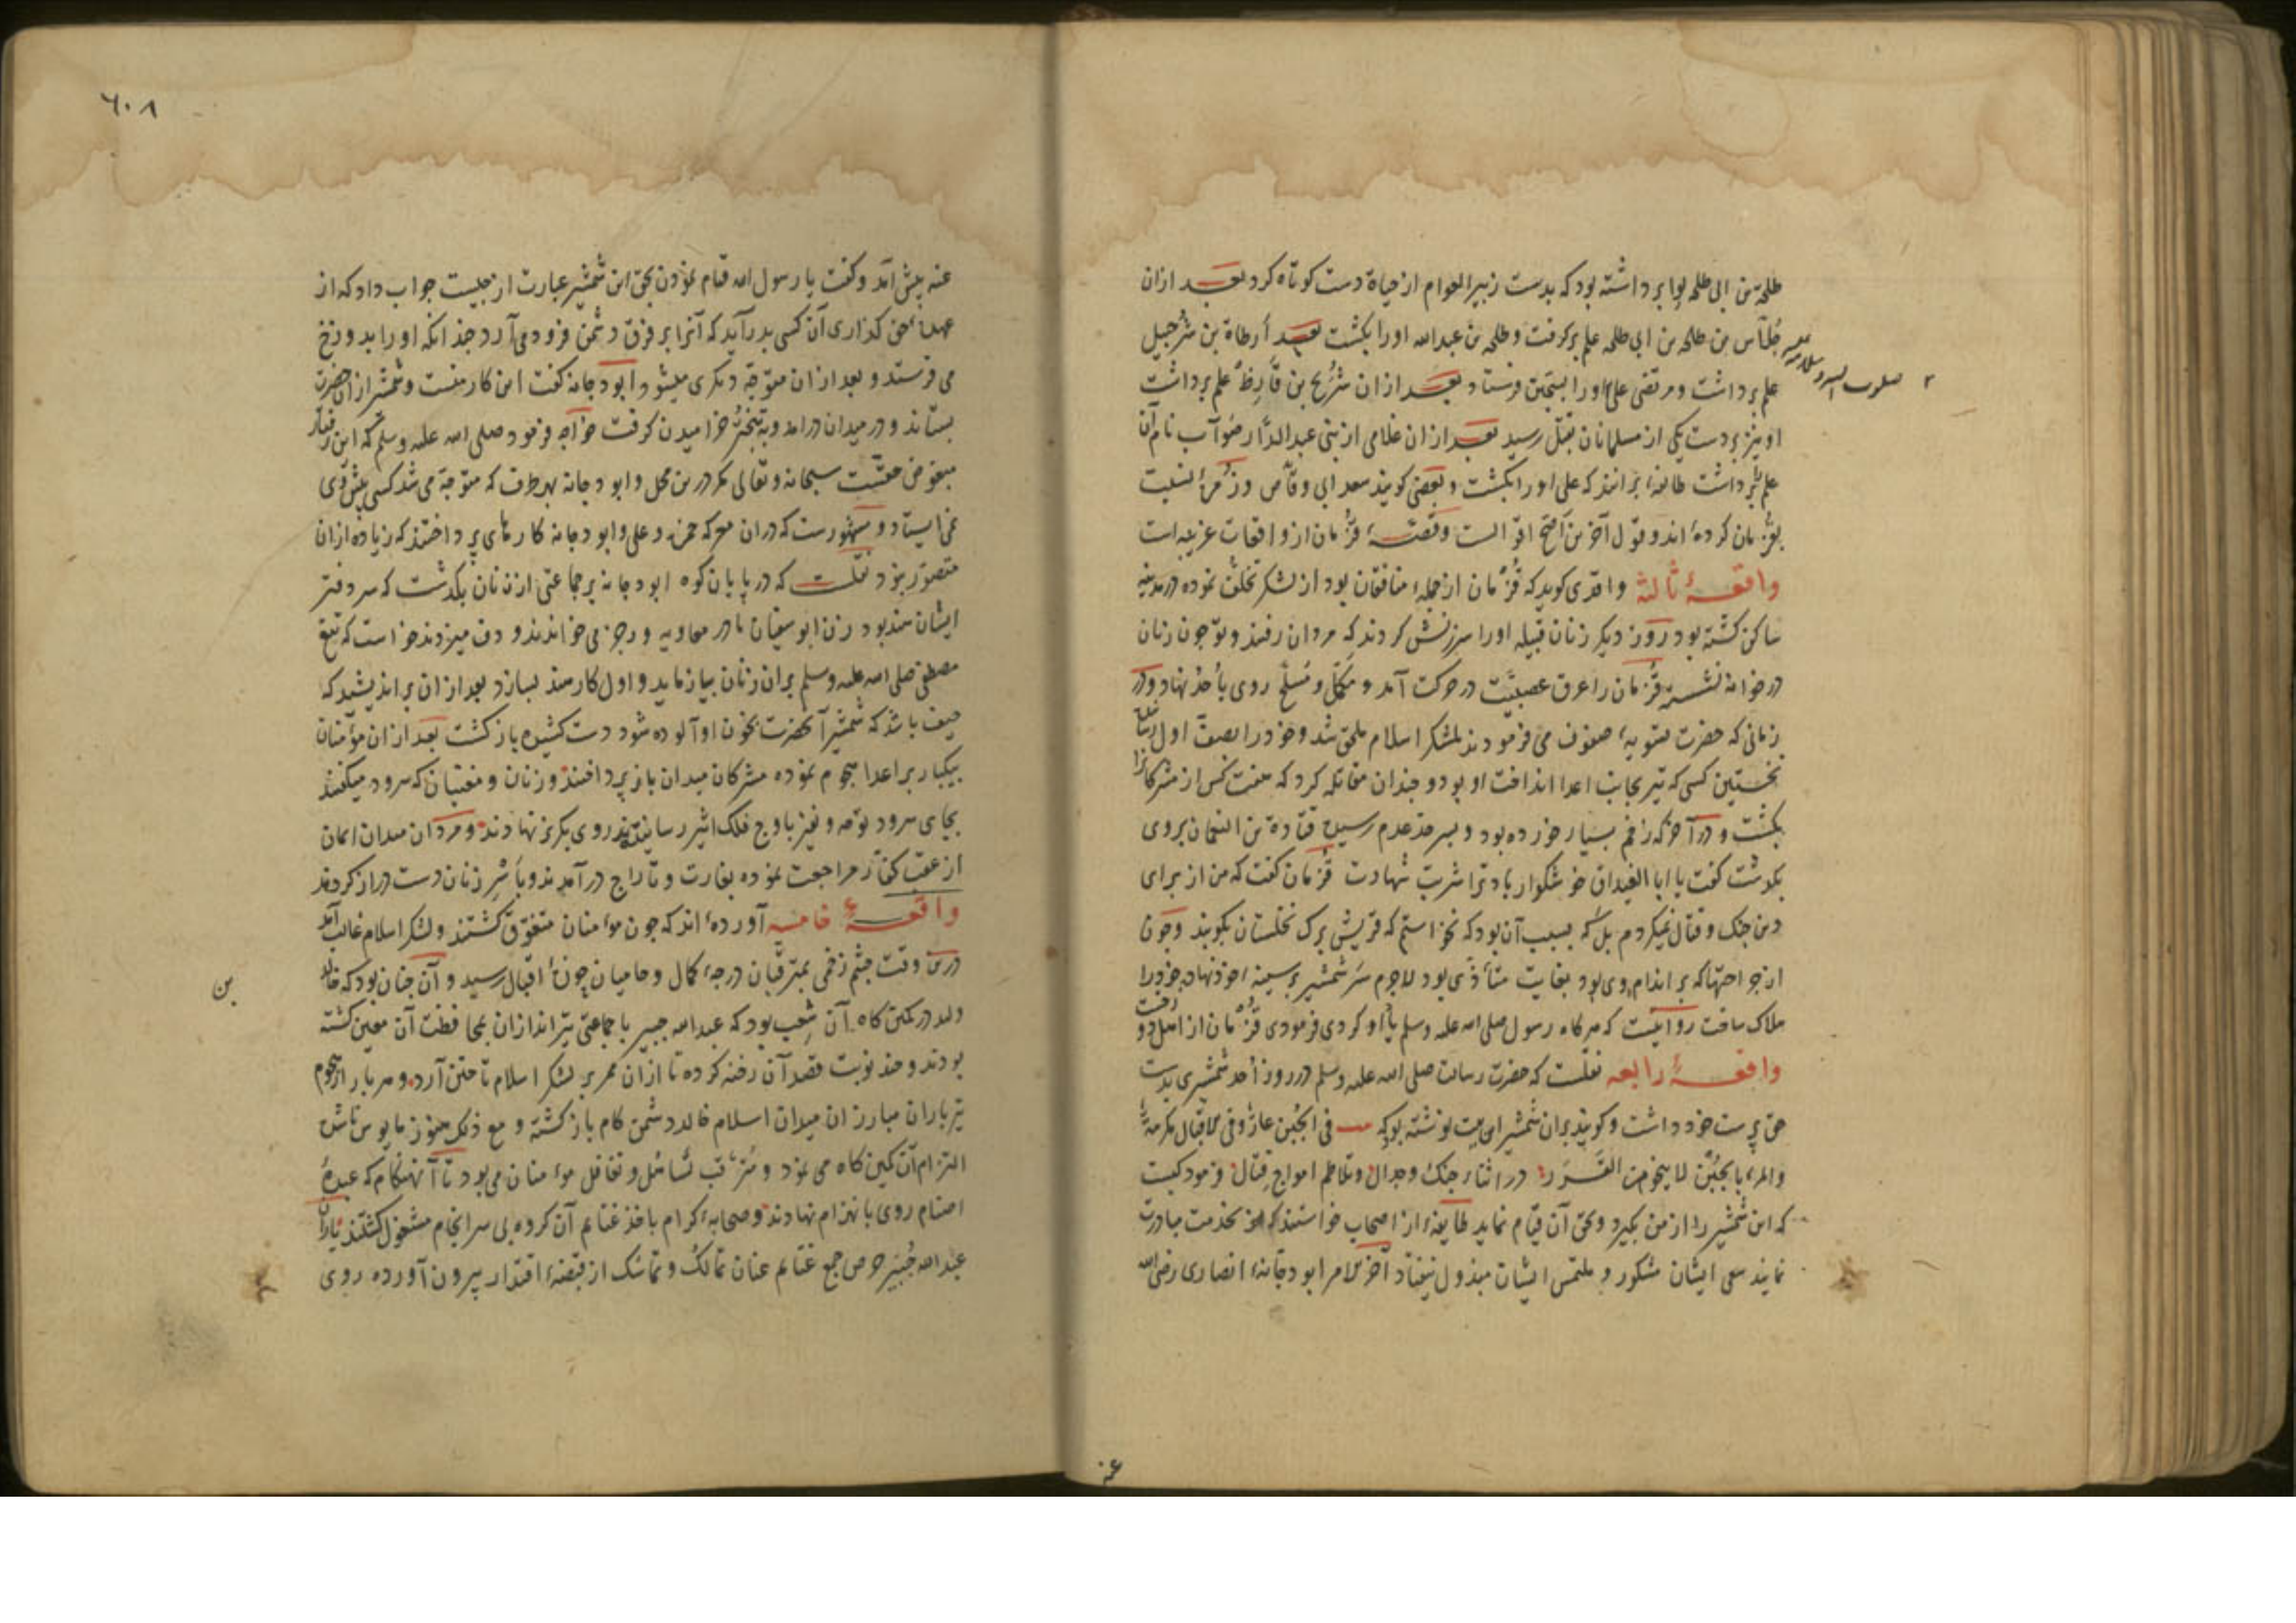 طلحة بن ابی طلحه لوا بر داشته بود که بدست زبیر العوام از حیاة دست کوتاه کرد بعد ازان
جُلاس بن طلحه بن ابی طلحه علم بر کرفت و طلحه بن عبدالله اورا بکشت بعد أرطاة بن شُرحبیل
علم بر داشت و مرتضی علی اورا بسجین فرستاد بعد ازان شُریح بن قارِظ علم بر داشت
او نیز بر دست یکی از مسلمانان بقتل رسید بعد ازان غلامی از بنی عبد الدّار صُوآب نام آن
علم بر داشت طایفهٔ برانند که علی اورا بکشت و بعضی کویند سعد ابی وقّاص و زُمرهٔ نسبت
بقُزمان کرده‌ٔ اند و قول آخرین اصحّ اقوالست و قصّهٔ قُزمان از واقعات غریبه است
واقعهٔ ثالثه واقدی کوید که قُزمان از جملهٔ منافقان بود از لشکر تخلّف نموده در مدینه
ساکن کشته بود روز دیکر زنان قبیله اورا سرزنش کردند که مردان رفتند و تو چون زنان
در خوانه نشسته قُزمان را عرق عصبیّت در حرکت آمد و مکمّل و مُسلّح روی بأحد نهاد و در
زمانی که حضرت تسویهٔ صفوف می فرمودند بلشکر اسلام ملحق شد و خود را بصفّ اول رسانید
نخستین کسی که تیر بجانب اعدا انداخت او بود و چندان مقاتله کرد که هفت کس از مشرکانرا
بکشت و در آخر که زخم بسیار خورده بود و بسرحد عدم رسیده قتادة بن النعمان بروی
بکذشت کفت یا ابا الغیداق خوشکوار باد ترا شربت شهادت قُزمان کفت که من از برای
دین جنک و قتال نمیکردم بل که بسبب آن بود که نخواستم که قریش برک نخلستان بکویند و چون
از جراحتها که بر اندام وی بود بغایت متأذّی بود لاجرم سَر شمشیر بر سینهٔ خود نهاد و خود را
هلاک ساخت روایتست که هر کاه رسول صلی الله علیه وسلم یاد او کردی فرمودی قُزمان از اهل دوزخست
واقعهٔ رابعه نقلست که حضرت رسالت صلی الله علیه وسلم در روز أحد شمشیری بدست
حق پرست خود داشت و کویند بران شمشیر این بیت نوشته بود که فی الجُبن عارٌ و فی الاقبال مکرمةٌ
والمرء بالجُبن لا ینجو من القَدَر در اثناء جنک و جدال و تلاطم امواج قتال فرمود کیست
که این شمشیر را از من بکیرد و بحق آن قیام نماید طایفهٔ از اصحاب خواستند که بدین خدمت مبادرت
نمایند سعی ایشان مشکور و ملتمس ایشان مبذول نیفتاد آخر الامر ابو دجانهٔ انصاری رضی الله
عنه
٦٠٨
عنه پیش آمد و کفت یا رسول الله قیام نمودن بحق این شمشیر عبارت از چیست جواب داد که از
عهدهٔ حق کذاری آن کسی بدر آید که آنرا بر فرق دشمن فرود می آرد چندانکه اورا بدوزخ
می فرستد و بعد ازان متوجّه دیکری میشود ابو دجانه کفت این کار منست و شمشیر از آنحضرت
بستاند و در میدان درامد و به تبختر خرامیدن کرفت خواجه فرمود صلی الله علیه وسلم که این رفتار
مبغوض حقست سبحانه و تعالی مکر درین محل و ابو دجانه بهر طرف که متوجه می شد کسی پیش وی
نمی ایستاد و مشهورست که دران معرکه حمزه و علی و ابو دجانه کارهای پرداختند که زیاده ازان
متصوّر نبود نقلست که در پایان کوه ابو دجانه بر جماعتی از زنان بکذشت که سر دفتر
ایشان هند بود زن ابو سفیان مادر معاویه و رجز می خواندند و دف میزدند خواست که تیغ
مصطفی صلی الله علیه وسلم بران زنان بیازماید و اول کار هند بسازد بعد ازان بر اندیشید که
حیف باشد که شمشیر آنحضرت بخون او آلوده شود دست کشیده باز کشت بعد ازان مؤمنان
بیکبار بر اعدا هجوم نموده مشرکان میدان باز پرداختند و زنان و مغنیان که سرود میکفتند
بجای سرود نوحه و نفیر باوج فلک اثیر رسانیدند روی بکریز نهادند و مردان میدان ایمان
از عقب کفّار مراجعت نموده بغارت و تاراج در آمدند و بأسر زنان دست دراز کردند
واقعهٔ خامسه آورده‌ٔ اند که چون مؤمنان متفوّق کشتند و لشکر اسلام غالب آمد
درین وقت چشم زخمی بمترقّبان درجهٔ کمال و حامیان اقبال رسید و آن چنان بود که خالد
ولید در کمین کاه آن شِعب بود که عبدالله جبیر با جماعتی تیراندازان بمحافظت آن معین کشته
بن
بودند و چند نوبت قصد آن رخنه کرده تا ازان ممر بر لشکر اسلام تاختن آرد و هر بار از هجوم
تیرباران مبارزان میدان اسلام خالد دشمن کام باز کشته و مع ذلک هنوز مایوس ناشده
التزام آن کمین کاه می نمود و مُترقّب تساهل و تغافل مؤمنان می بود تا آنهنکام که عبدهٔ
اصنام روی بانهزام نهادند و صحابهٔ کرام باخذ غنایم آن کروه بی سرانجام مشغول کشتند یاران
عبدالله جُبیر حرص جمع غنایم عنان تمالک و تماسک از قبضهٔ اقتدار بیرون آورده روی